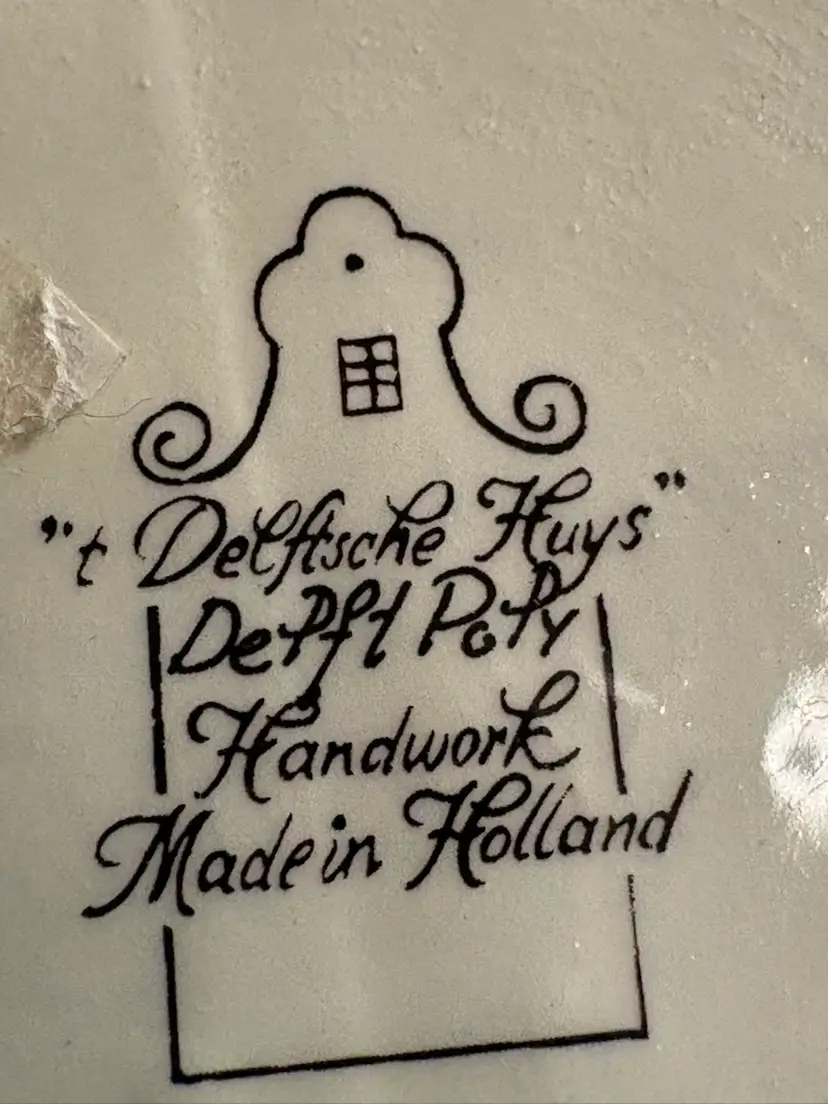 "t Delftsche Huys"
Delft Poly
Handwork
Made in Holland